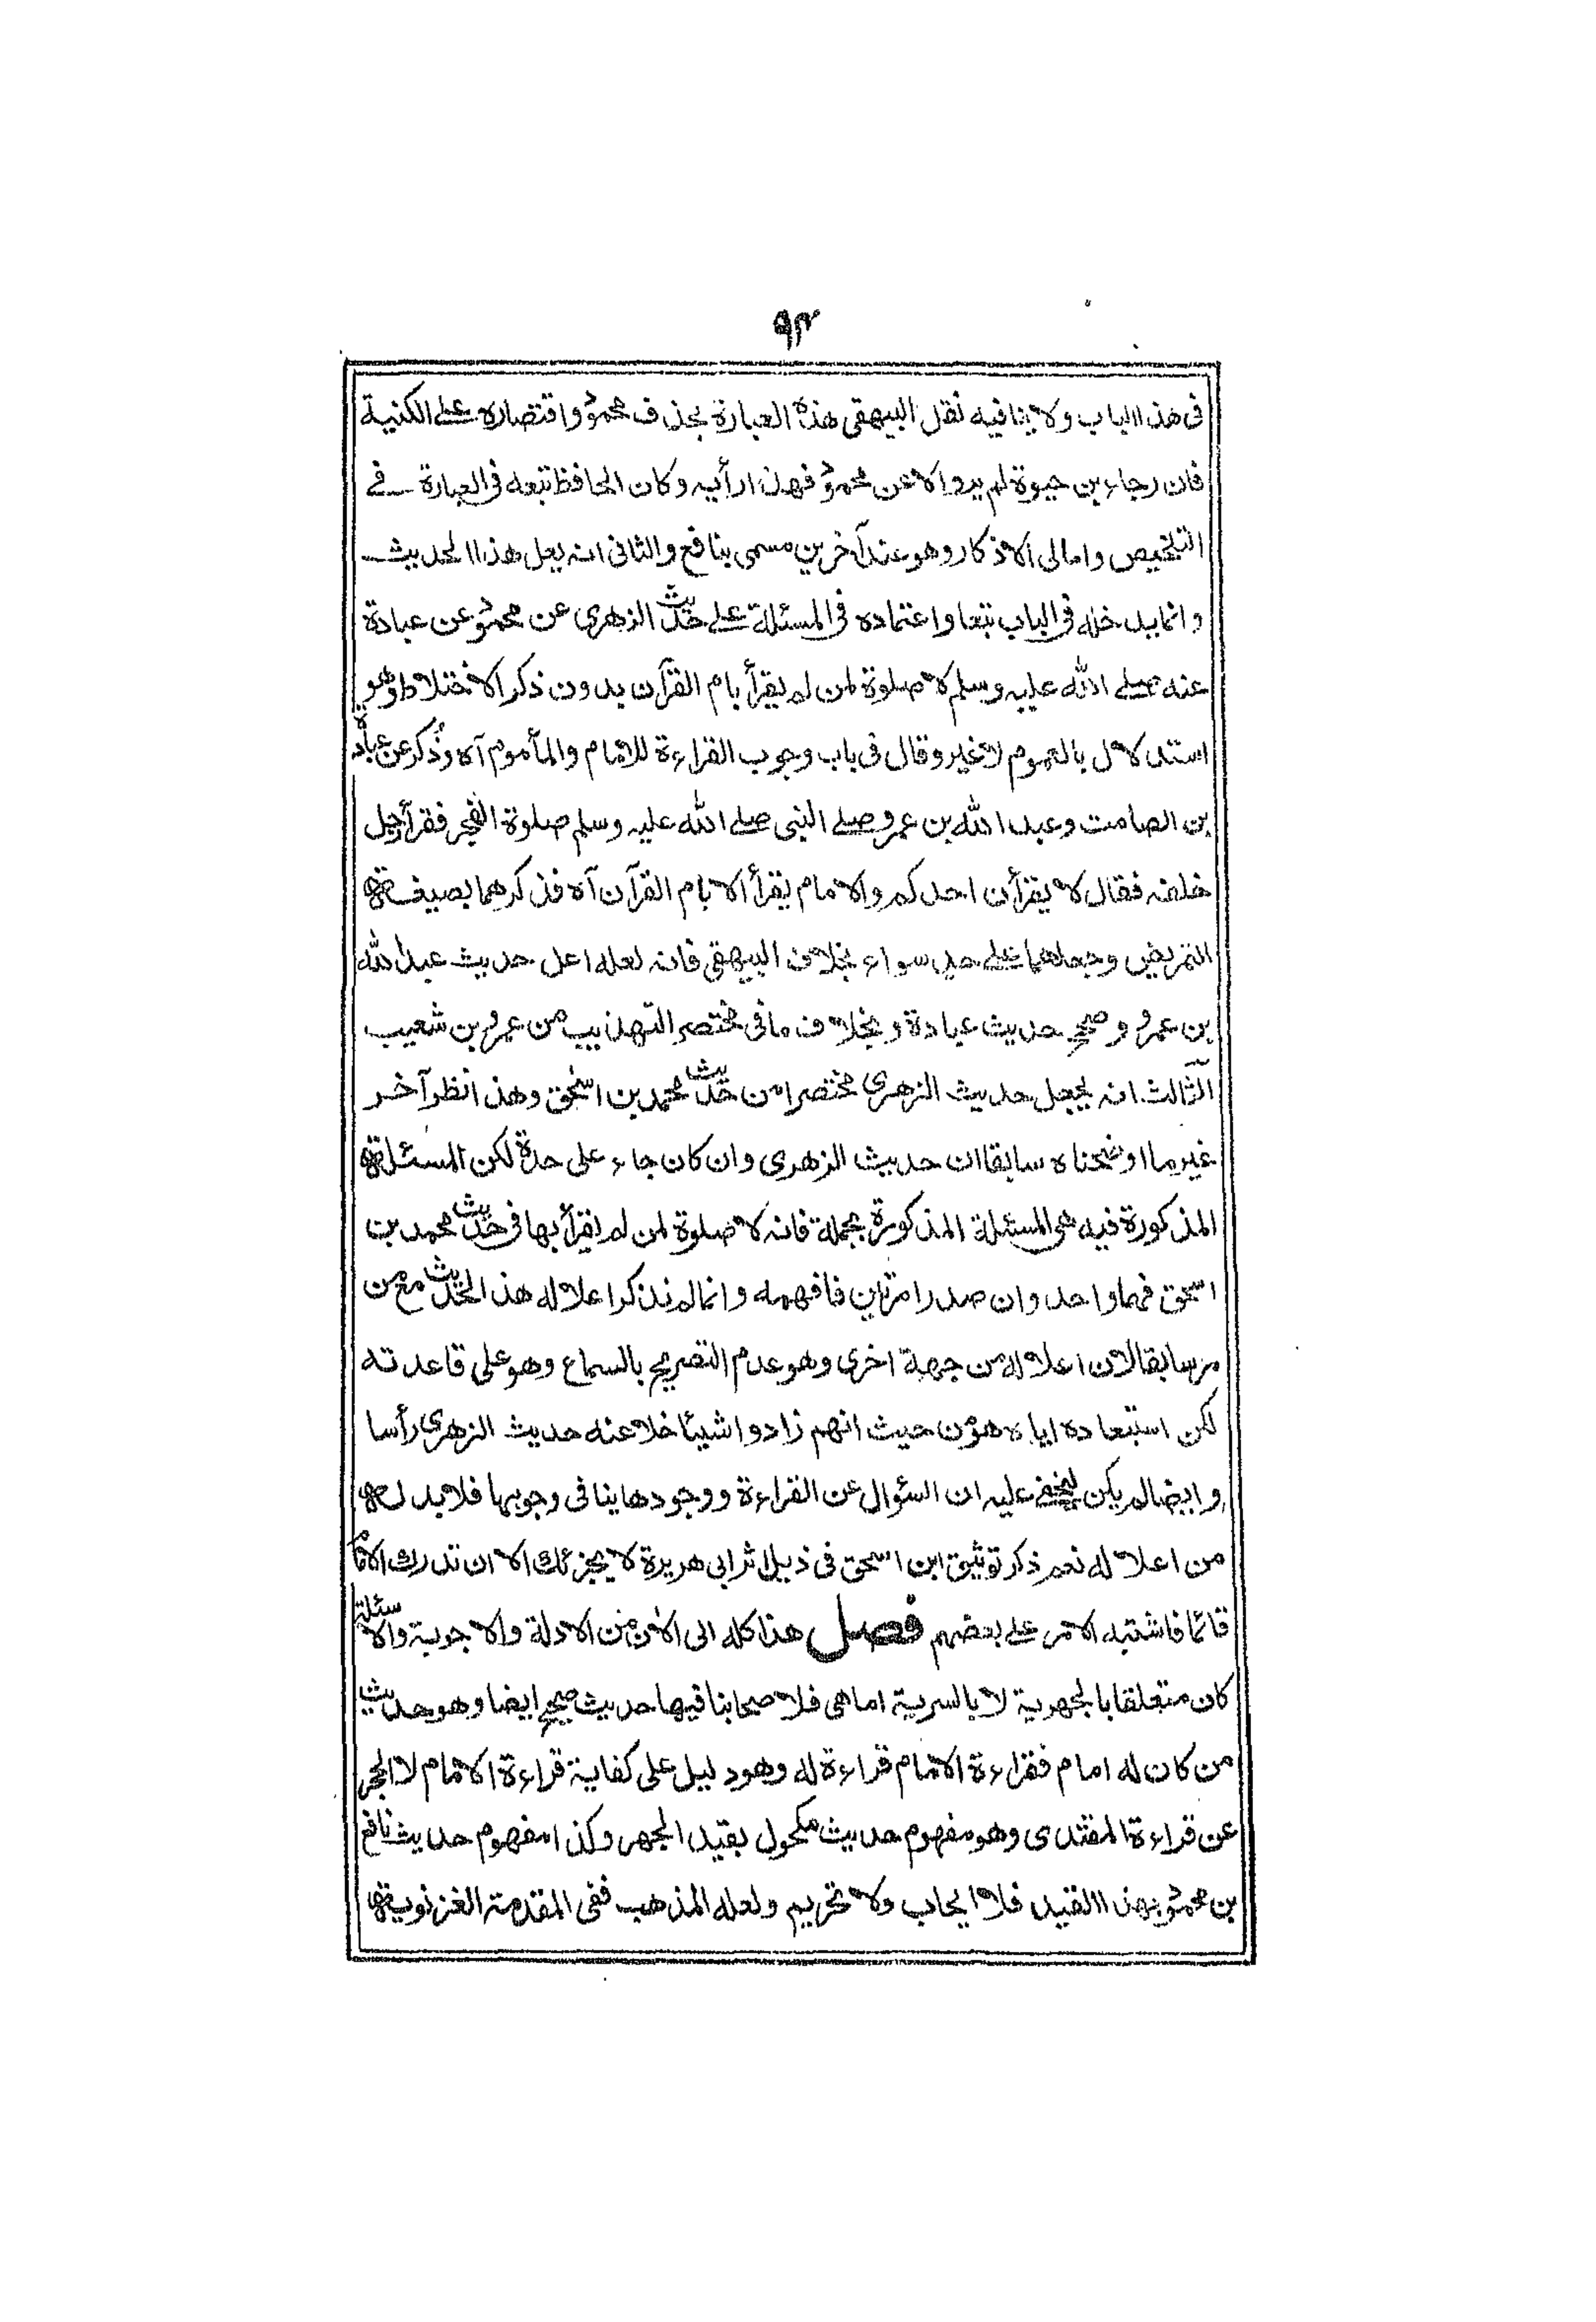 ٩٣
فى هذا الباب ولا ينافيه نقل البيهقى هذه العبارة بحذف محمود واقتصاره على الكنية
فان رجاء بن حيوة لم يروا لا عن محمود فهذا رأيه وكان الحافظ تبعه فى العبارة فے
التلخيص وامالى الاذكار وهو عند آخرين مسمى بنافع والثانى انه يعل هذا الحديث
وانما يدخله فى الباب تبعا واعتماده فى المسئلة على حديث الزهرى عن محمود عن عبادة
عنه صلے الله عليه وسلم لا صلوة لمن لم يقرأ بام القرآن بدون ذكر الاختلاط وهو
استدلال بالعموم لا غير وقال فى باب وجوب القراءة للامام والمأموم آه وذكر عن عبادة
بن الصامت وعبد الله بن عمرو صلے النبى صلے الله عليه وسلم صلوة الفجر فقرأ رجل
خلفه فقال لا يقرأن احدكم والامام يقرأ الا بام القرآن آه فذكرهما بصيغة
التمريض وجعلهما على حد سواء بخلاف البيهقى فانه لعله اعل حديث عبد الله
بن عمرو وصحح حديث عبادة وبخلاف ما فى مختصر التهذيب من عمرو بن شعيب
الثالث انه يجعل حديث الزهرى مختصرا من حديث محمد بن اسحق وهذا نظر آخر
غير ما اوضحناه سابقا ان حديث الزهرى وان كان جاء على حدة لكن المسئلة
المذكورة فيه هى المسئلة المذكورة بجملة فانه لا صلوة لمن لم يقرأ بها فى حديث محمد بن
اسحق فهما واحد وان صدرا مرتين فافهمه وانما لم نذكر اعلاله هذا الحديث مع من
مر سابقا لان اعلاله من جهة اخرى وهو عدم التصريح بالسماع وهو على قاعدته
لكن استبعاده اياه هو من حيث انهم زادوا شيئا خلا عنه حديث الزهرى رأسا
وايضا لم يكن ليخفے عليه ان السؤال عن القراءة ووجودها ينافى وجوبها فلا بد له
من اعلاله نعم ذكر توثيق ابن اسحق فى ذيل اثر ابى هريرة لا يجزئك الا ان تدرك الامام
قائما فاشتبه الامر على بعضهم فصل هذا كله الى الآن من الادلة والاجوبة والاسئلة
كان متعلقا بالجهرية لا بالسرية اما هى فلاصحابنا فيها حديث صحيح ايضا وهو حديث
من كان له امام فقراءة الامام قراءة له وهو دليل على كفاية قراءة الامام لا الحجر
عن قراءة المقتدى وهو مفهوم حديث مكحول بقيد الجهر وكذا مفهوم حديث نافع
بن محمود بهذا القيد فلا ايجاب ولا تحريم ولعله المذهب ففى المقدمة الغزنوية